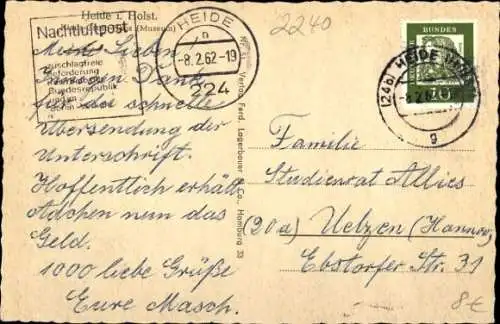 Heide i. Holst.
(Museum)
Nachtluftpost
zuschlagfreie
Beförderung
Bundesrepublik
HEIDE
-8.2.62-19
224
2240
BUNDES
(24b) HEIDE
-8.2.62
g
Meine Lieben
Innigen Dank
für die schnelle
Übersendung der
Unterschrift.
Hoffentlich erhält
Adchen nun das
Geld.
1000 liebe Grüße
Eure Masch.
Verlag Ferd. Lagerbauer & Co., Hamburg 33
Familie
Studienrat Allies
(20a) Uelzen (Hannov.)
Ebstorfer Str. 31
8€